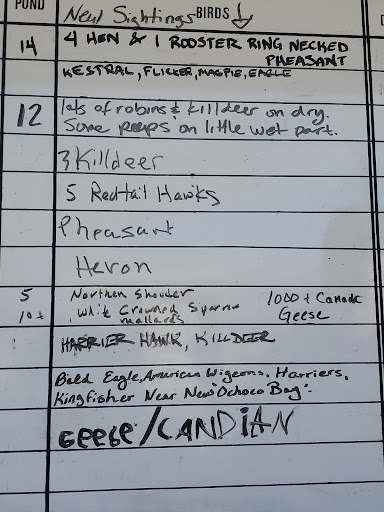 POND New Sightings BIRDS
14 4 HEN & 1 ROOSTER RING NECKED
PHEASANT
KESTRAL, FLICKER, MAGPIE, EAGLE
12 lots of robins & killdeer on dry.
Some peeps on little wet part.
3 Killdeer
5 Redtail Hawks
Pheasant
Heron
5 Northen Shovler 1000 + Canada
White Crowned Sparrow Geese
mallards
HARRIER HAWK, KILLDEER
Bald Eagle, American Wigeons, Harriers,
Kingfisher Near New "Ochoco Bay".
GEESE/CANDIAN